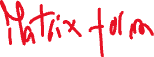 Matrix form